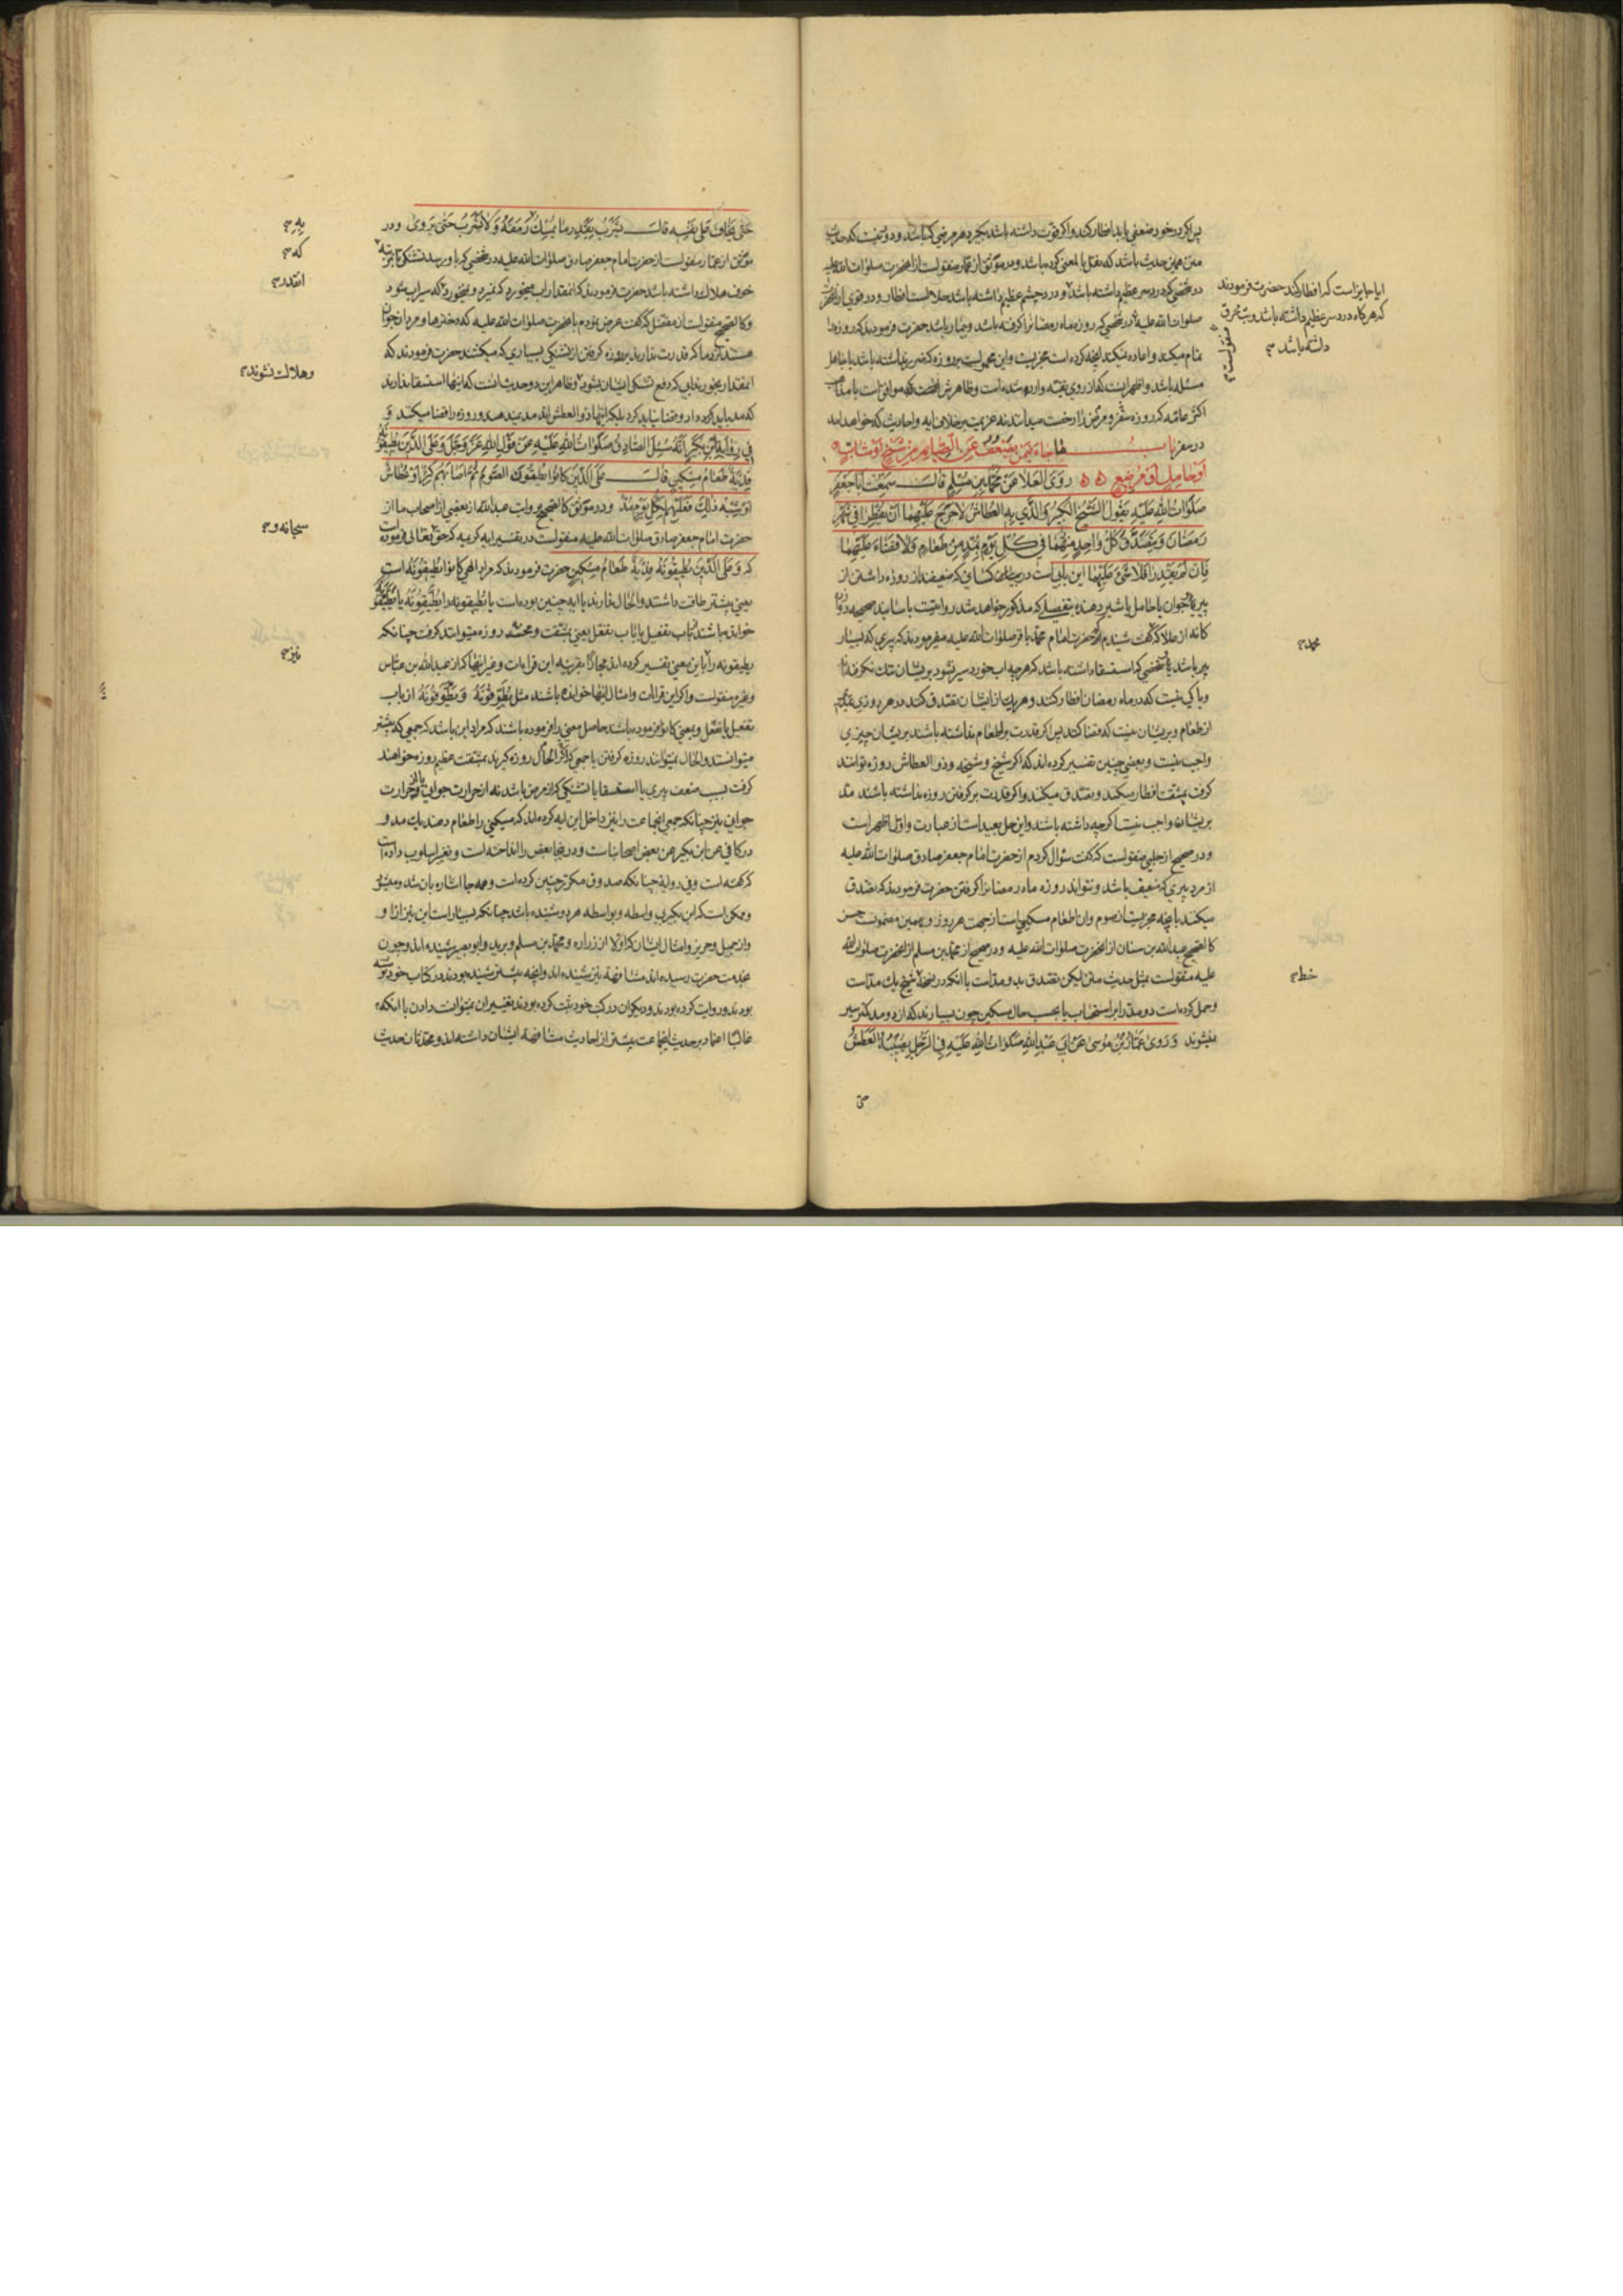 پس اگر در خود ضعفی یابد افطار کند و اگر قوت داشته باشد بگیرد هر مرضی که باشد و دور نیست که حدیث
متن همین حدیث باشد که نقل بالمعنی کرده باشد و در موثق از عمار منقولست از آنحضرت صلوات الله علیه
در شخصی که درد سر عظیم داشته باشد و درد چشم عظیم داشته باشد حلالست افطار و در قوی از آنحضرت
صلوات الله علیه در شخصی که روزه ماه رمضان را گرفته باشد و بیمار باشد حضرت فرمودند که روزه را
تمام میکند و اعاده نمیکند آنچه کرده است مجزیست و این محمولست بر روزه که ضرر نداشته باشد یا جاهل
مسئله باشد و اظهر اینست که از روی تقیه وارد شده است
اکثر عامه که روزه سفر و مرض را رخصت میدانند نه عزیمت بر خلاف آیه و احادیث که خواهد آمد
در سفر باب ما جاء فیمن یضعف عن الصیام من شیخ او شاب
او حامل او مرضع روی العلاء عن محمد بن مسلم قال سمعت ابا جعفر
صلوات الله علیه یقول الشیخ الکبیر والذی به العطاش لا حرج علیهما ان یفطرا فی شهر
رمضان ویتصدق کل واحد منهما فی کل یوم بمد من طعام ولا قضاء علیهما
فان لم یقدرا فلا شیء علیهما این بابی است در بیان کسانی که ضعیفند از روزه داشتن از
پیر و جوان یا حامل یا شیر دهنده بتفصیلی که مذکور خواهد شد روایتست باسانید صحیحه
کالعلا که گفت شنیدم از حضرت امام محمد باقر صلوات الله علیه میفرمودند که پیری که بسیار
پیر باشد یا شخصی که استسقا داشته باشد که هر چه آب خورد سیر نشود بر ایشان تنگ نگرفته اند
و باکی نیست که در ماه رمضان افطار کنند و هر یک از ایشان تصدق کنند در هر روزی بمدی
از طعام و بر ایشان نیست که قضا کنند پس اگر قدرت بر اطعام نداشته باشند بر ایشان چیزی
واجب نیست و بعضی چنین تفسیر کرده اند که اگر شیخ و شیخه و ذو العطاش روزه توانند
گرفت بمشقت افطار میکنند و تصدق میکنند و اگر قدرت بر گرفتن روزه نداشته باشند مد
بر ایشان واجب نیست اگر چه داشته باشند و این حمل بعید است از عبارت و اول اظهر است
و در صحیح از حلبی منقولست که گفت سؤال کردم از حضرت امام جعفر صادق صلوات الله علیه
از مرد پیری که ضعیف باشد و نتواند روزه ماه رمضان را گرفتن حضرت فرمودند که تصدق
میکند بآنچه مجزیست از صوم و آن اطعام مسکینی است از جهت هر روز و بهمین مضمونست حسن
کالصحیح عبد الله بن سنان از آنحضرت صلوات الله علیه و در صحیح از محمد بن مسلم از آنحضرت صلوات الله
علیه منقولست بمثل حدیث متن لیکن تصدق بدو مد است با آنکه در نسخه شیخ یک مد است
و حمل کرده است دو مد را بر استحباب یا بحسب حال مسکین چون بسیارند که از دو مد کمتر سیر
نمیشوند وروی عمار بن موسی عن ابی عبد الله صلوات الله علیه فی الرجل یصیبه العطش
آیا جایز است که افطار کند حضرت فرمودند
که هر گاه درد سر عظیم داشته باشد و تب محرق
داشته باشد
منقولست
محمد
خط
حتی یخاف علی نفسه قال یشرب بقدر ما یمسک رمقه ولا یشرب حتی یروی و در
موثق از عمار منقولست از حضرت امام جعفر صادق صلوات الله علیه در شخصی که باو رسد تشنگی تا بمرتبه
خوف هلاک داشته باشد حضرت فرمودند که آنقدر آب میخورد که نمیرد و نمیخورد که سیراب شود
و کالصحیح منقولست از مفضل که گفت عرض نمودم بآنحضرت صلوات الله علیه که دخترها و مردان جوان
هستند که قدرت ندارند بر روزه گرفتن از تشنگی بسیاری که میکشند حضرت فرمودند که
آنمقدار بخورند آبی که دفع تشنگی ایشان بشود و ظاهر این دو حدیث آنست که اینها استسقا ندارند
که مد باید کرد
فی روایة ابن بکیر انه سئل الصادق صلوات الله علیه عن قول الله عز وجل وعلی الذین یطیقونه
فدیة طعام مسکین قال علی الذین کانوا یطیقون الصوم ثم اصابهم کبر او عطاش
او شبه ذلک فعلیهم لکل یوم مد و در موثق کالصحیح بروایت عبد الله از بعضی از اصحاب ما از
حضرت امام جعفر صادق صلوات الله علیه منقولست در تفسیر آیه کریمه که حق تعالی فرموده است
که وعلی الذین یطیقونه فدیة طعام مسکین حضرت فرمودند که مراد الهی کانوا یطیقونه است
یعنی پیشتر طاقت داشتند و الحال ندارند یا آیه چنین بوده است
خوانده باشند از باب تفعیل یا باب تفعل یعنی بمشقت و محنت روزه میتوانند گرفت چنانکه
یطیقونه را باین معنی تفسیر کرده اند مجازا بقرینه این قراءات و غیر اینها که از عبد الله بن عباس
و غیره منقولست و اگر این قراءات و امثال اینها خوانده باشند مثل یطوقونه و یتطوقونه از باب
تفعیل یا تفعل و بمعنی کانوا فرموده باشند حاصل معنی را فرموده باشند که مراد این باشد که جمعی که پیشتر
میتوانستند و الحال نمیتوانند روزه گرفتن یا جمعی که اگر الحال روزه گیرند بمشقت عظیم روزه خواهند
گرفت بسبب ضعف پیری یا استسقا یا تشنگی که از مرض باشد نه از حرارت جوانی
جوانی نیز چنانکه جمعی این جماعت را نیز داخل این آیه کرده اند که مسکینی را طعام دهند یک مد و
در کافی عن ابن بکیر عن بعض اصحابنا است و در اینجا بعض را انداخته است و تغییر اسلوب داده است
که گفته است وفی روایة چنانکه صدوق مکرر چنین کرده است و همه جا اشاره بآن شد
و ممکن است که ابن بکیر بی واسطه و بواسطه هر دو شنیده باشد چنانکه بسیار است این نیز از او
و از جمیل و حریز و امثال ایشان که اولا از زراره و محمد بن مسلم و برید و ابو بصیر شنیده اند و چون
بخدمت حضرت رسیده اند مشافهة نیز شنیده اند و آنچه پیشتر شنیده بودند در کتاب خود نوشته
بودند و روایت کرده بودند و دیگران در کتب خود ثبت کرده بودند تغییر آن نمیتوانست دادن با آنکه
غالبا اعتماد بر حدیث این جماعت بیشتر از احادیث مشافهه ایشان داشته اند و محدثان حدیث
که
آنقدر
و هلاک نشوند
سبحانه و
نیز